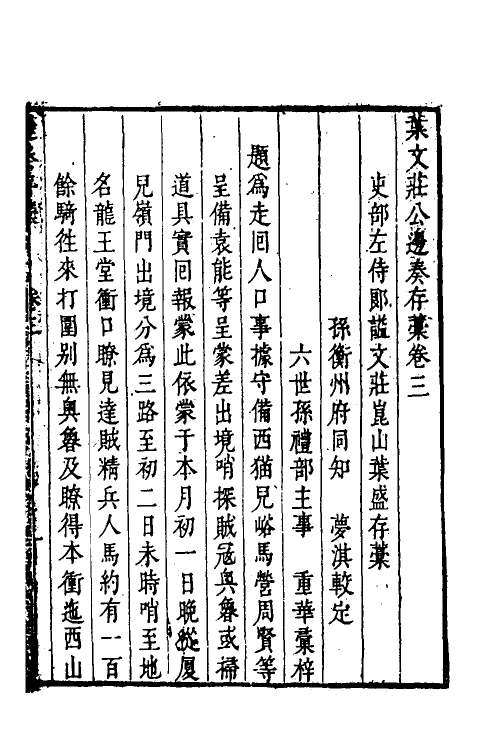 葉文莊公邊奏存藁卷三
吏部左侍郎謚文莊崑山葉盛存藁
孫衡州府同知　夢淇較定
六世孫禮部主事　重華彙梓
題爲走回人口事據守備西猫兒峪馬營周賢等
呈備袁能等呈蒙差出境哨探賊冦輿魯或掃
道具實回報蒙此依蒙于本月初一日晚從厦
兒嶺門出境分爲三路至初二日未時哨至地
名龍王堂衝口瞭見達賊精兵人馬約有一百
餘騎徃來打圍别無輿魯及瞭得本衝迤西山